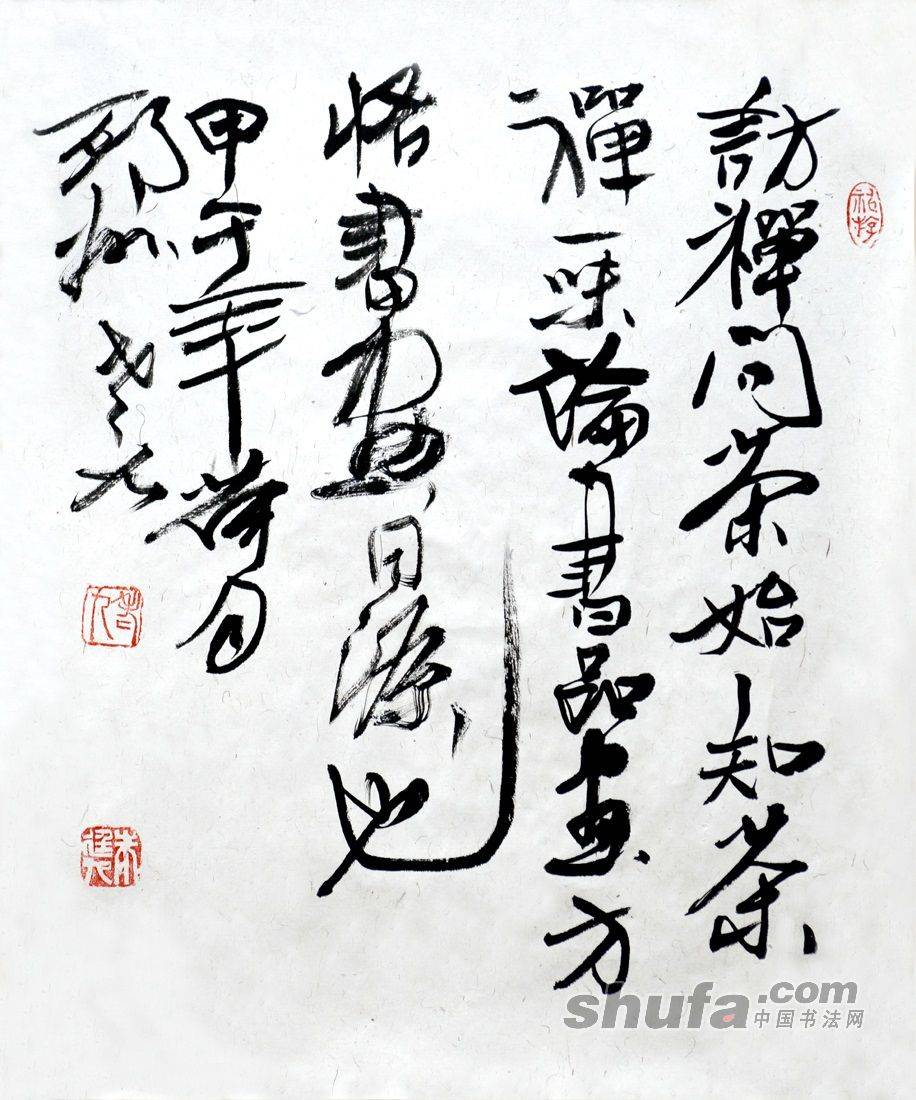 訪禪問茶始知茶
禪一味論書品畫方
悟書畫同源也
甲午年荷月
shufa.com
中国书法网